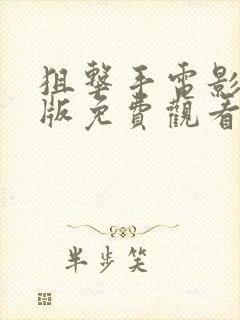 狙擊手電影
版免費觀看
半步笑